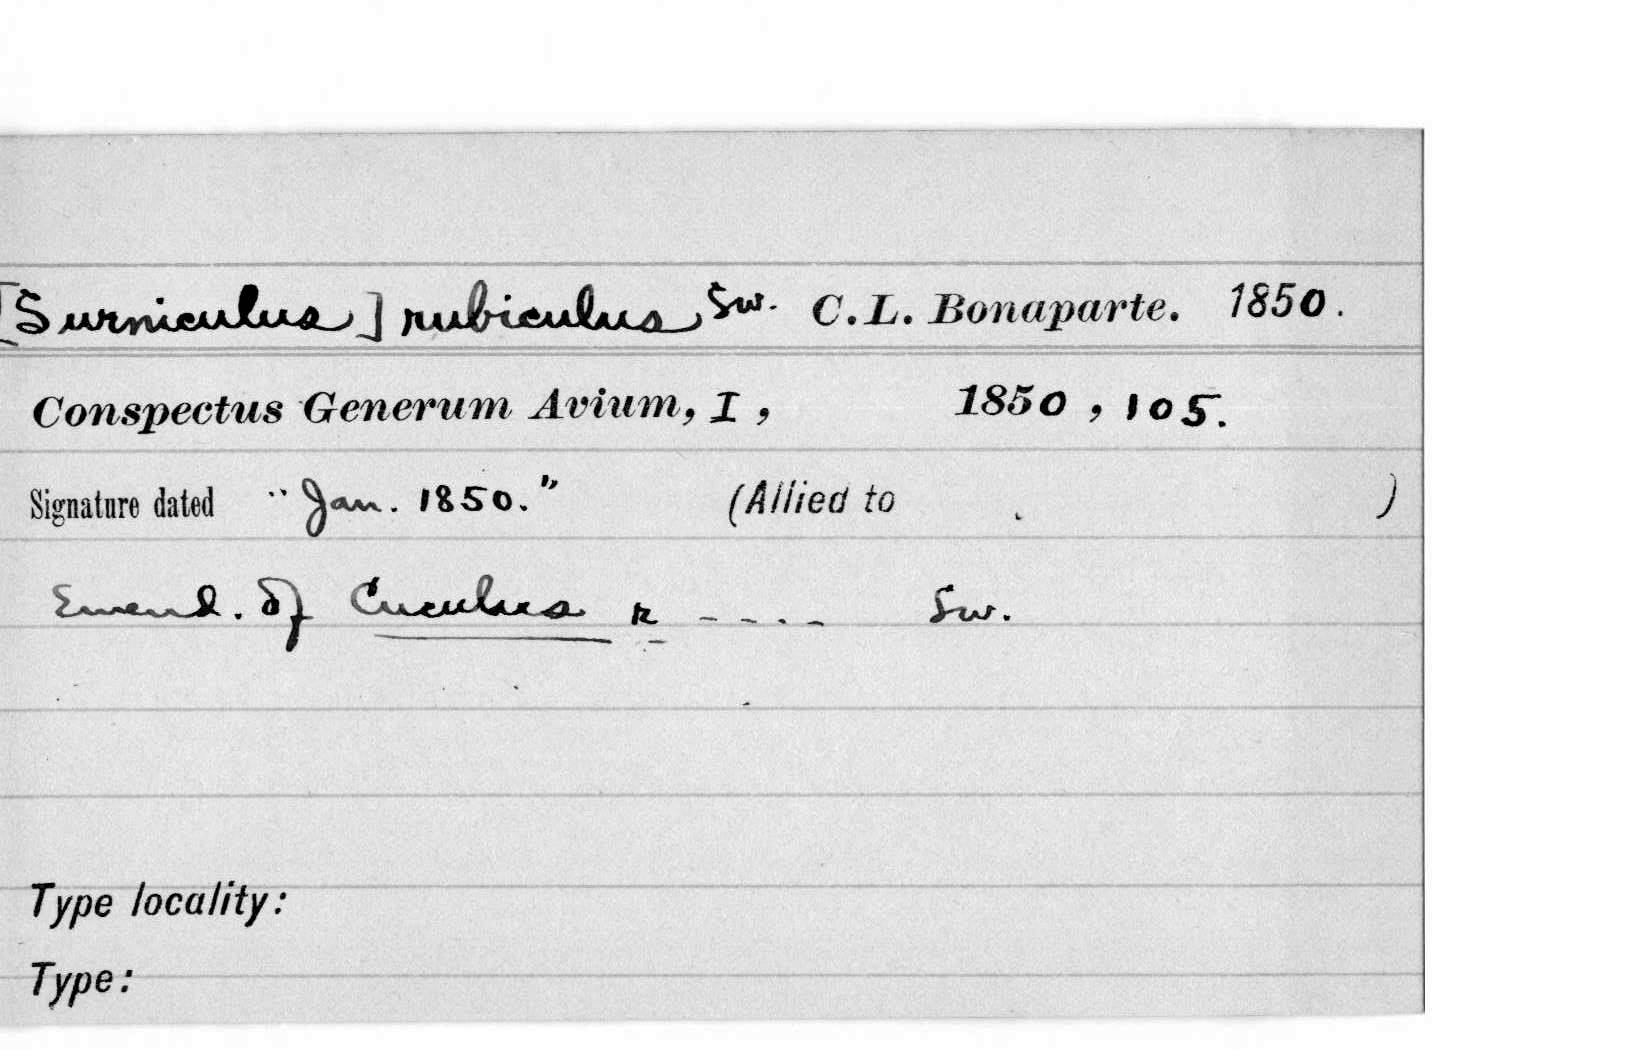 [Surniculus] rubiculus Sw. C.L. Bonaparte. 1850.
Conspectus Generum Avium, I, 1850, 105.
Signature dated "Jan. 1850." (Allied to )
Emend. of Cuculus r ---- Sw.
Type locality:
Type: